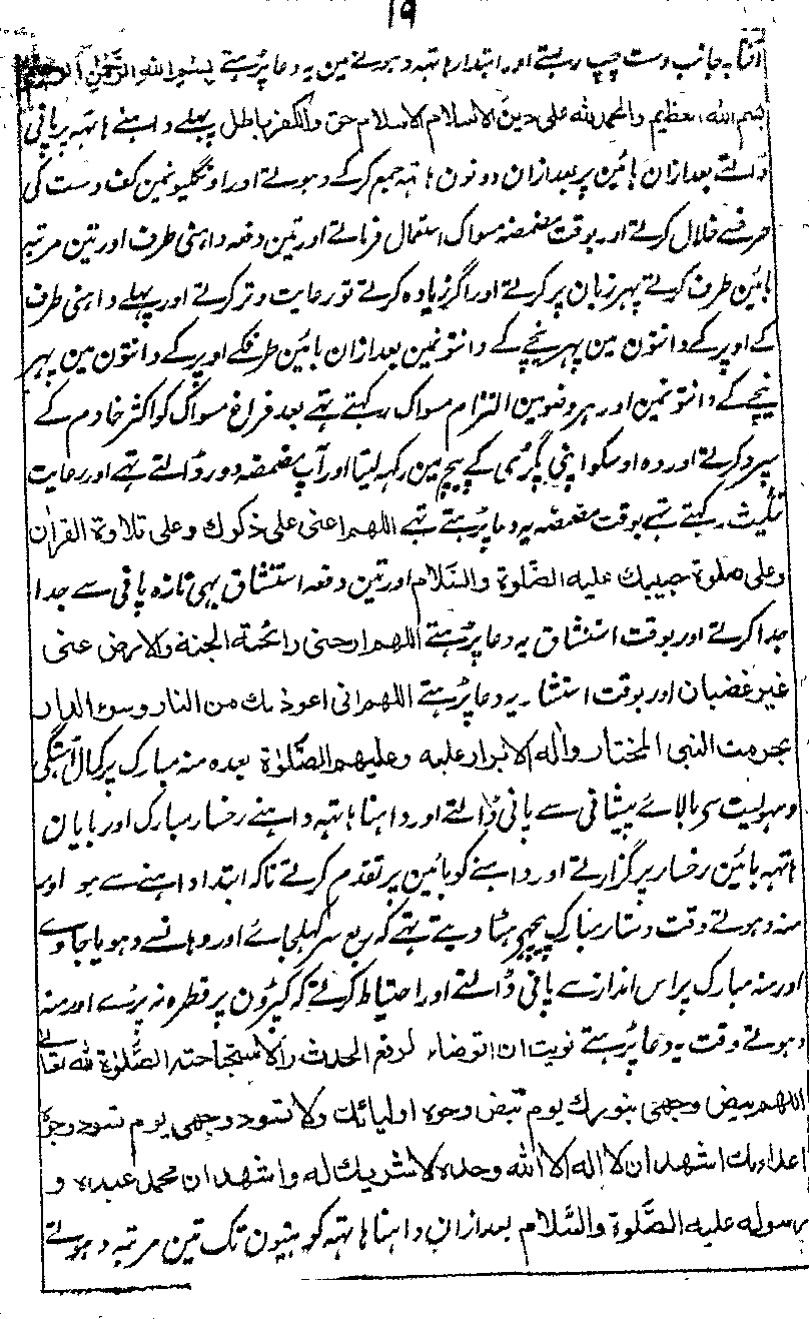 ١٩
آفتابہ جانب دست چپ رہتے اور ابتدار ہاتہہ دہونے مین یہ دعا پڑہتے بسم الله الرحمن الرحیم
بسم الله العظیم والحمد لله علی دین الاسلام الاسلام حق والکفر باطل پہلے داہنے ہاتہہ پر پانی
ڈالتے بعد ازان بائین پر بعد ازان دونون ہاتہہ جمع کرکے دہوتے اور اونگلیونمین کف دست کی
طرفسے خلال کرتے اور بوقت مضمضہ مسواک استعمال فرماتے اور تین دفعہ داہنی طرف اور تین مرتبہ
بائین طرف کرتے پہر زبان پر کرتے اور اگر زیادہ کرتے تو رعایت وتر کرتے اور پہلے داہنی طرف
کے اوپر کے دانتون مین پہر نیچے کے دانتونمین بعد ازان بائین طرفکے اوپر کے دانتون مین پہر
نیچے کے دانتونمین اور ہر وضو مین التزام مسواک رکہتے تہے بعد فراغ مسواک کو اکثر خادم کے
سپرد کرتے اور وہ اوسکو اپنی پگڑی کے پیچ مین رکہہ لیتا اور آپ مضمضہ دور ڈالتے تہے اور رعایت
تثلیث رکہتے تہے بوقت مضمضہ یہ دعا پڑہتے تہے اللهم اعنی علی ذکرك وعلی تلاوة القران
وعلی صلوة حبیبك علیه الصلوة والسلام اور تین دفعہ استنشاق بہی تازہ پانی سے جدا
جدا کرتے اور بوقت استنشاق یہ دعا پڑہتے اللهم ارحنی رائحة الجنة والارض عنی
غیر غضبان اور بوقت استنثار یہ دعا پڑہتے اللهم انی اعوذ بك من النار وسوء الدار
بحرمت النبی المختار واله الابرار علیه وعلیهم الصلوة بعدہ منہ مبارک پر کمال آہستگی
وسہولیت سے بالائے پیشانی سے پانی ڈالتے اور داہنا ہاتہہ داہنے رخسار مبارک اور بایان
ہاتہہ بائین رخسار پر گزارتے اور داہنے کو بائین پر تقدم کرتے تاکہ ابتداء داہنے سے ہو اور
منہ دہوتے وقت دستار مبارک پیچہے ہٹا دیتے تہے کہ ربع سر کہلجائے اور وہانسے دہویا جاوے
اور منہ مبارک پر اس انداز سے پانی ڈالتے اور احتیاط کرتے کہ کپڑون پر قطرہ نہ پڑے اور منہ
دہوتے وقت یہ دعا پڑہتے نویت ان اتوضاء لرفع الحدث و الصلوة لله تعالی
اللهم بیض وجهی بنورك یوم تبیض وجوه اولیائك ولا تسود وجهی یوم تسود وجوه
اعدائك اشهد ان لا اله الا الله وحده لا شریك له واشهد ان محمد عبده و
رسوله علیه الصلوة والسلام بعد ازان داہنا ہاتہہ کوہنیون تک تین مرتبہ دہوتے